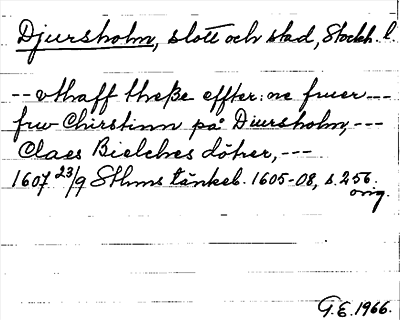 Djursholm, slott och stad, Stockh. l.
-- vthaff theße effter: ne fruer ---
fru Chirstinn på Diursholm, ---
Claes Bielches döter, ---
1607 23/9 Sthms tänkeb. 1605-08, s. 256.
orig.
G.E. 1966.